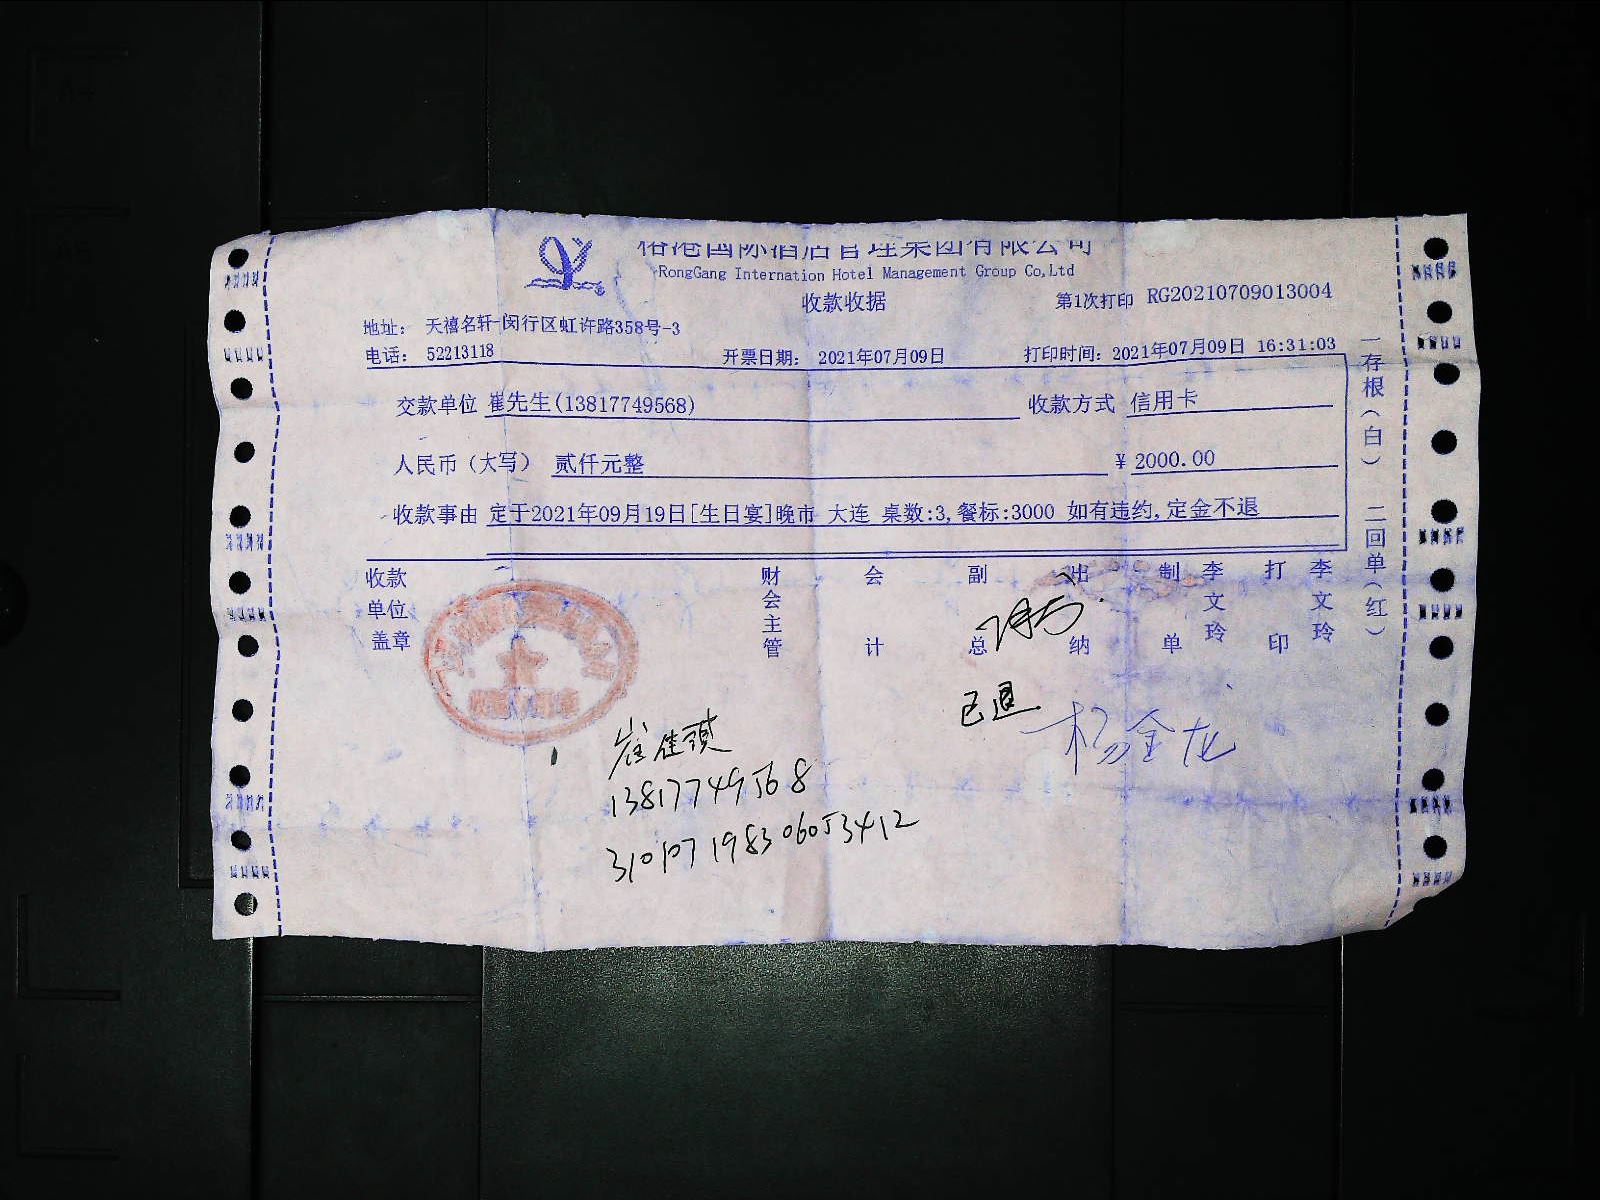 榕港国际酒店管理集团有限公司
RongGang Internation Hotel Management Group Co,Ltd
收款收据
第1次打印 RG20210709013004
地址： 天禧名轩-闵行区虹许路358号-3
电话： 52213118 开票日期： 2021年07月09日 打印时间：2021年07月09日 16:31:03
交款单位 崔先生(13817749568) 收款方式 信用卡
人民币（大写） 贰仟元整 ￥ 2000.00
收款事由 定于2021年09月19日[生日宴]晚市 大连 桌数:3,餐标:3000 如有违约,定金不退
收款单位盖章 财会主管 会计 副总 出纳 制单 李文玲 打印 李文玲
一存根（白） 二回单（红）
已退 杨金龙
13817749568
310107198306053412